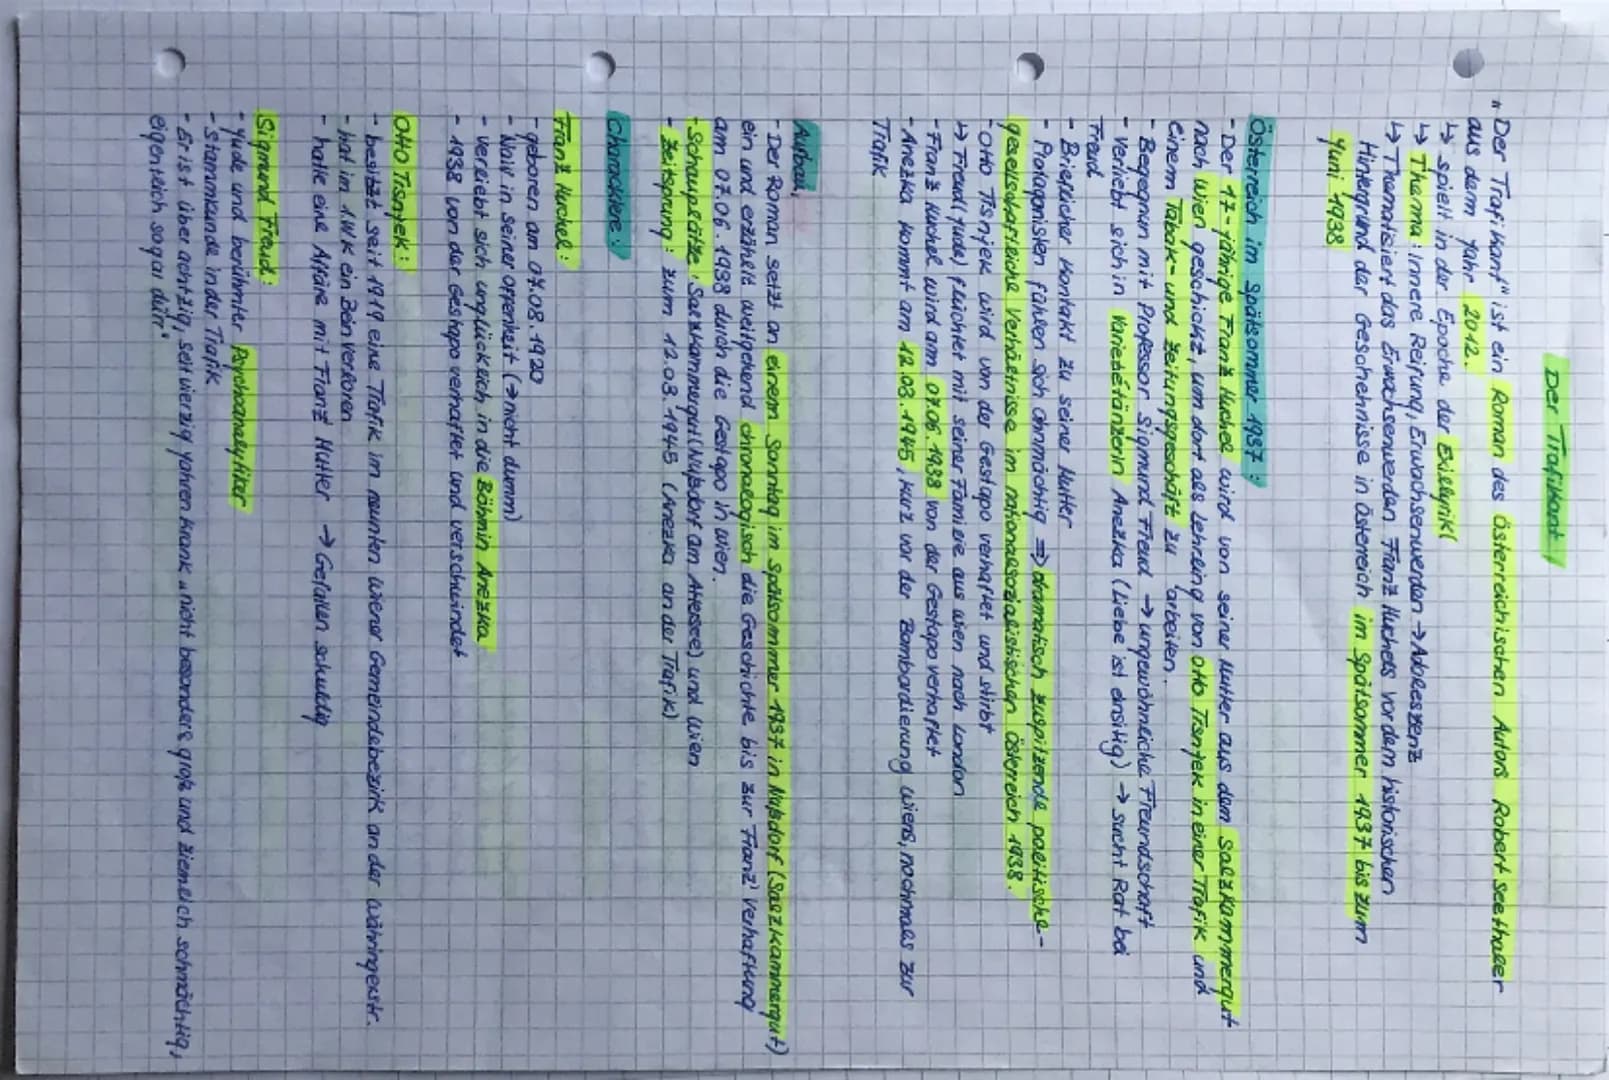 Der Trafikant
"Der Trafikant" ist ein Roman des österreichischen Autors Robert Seethaler
aus dem Jahr 2012.
↳ spielt in der Epoche der Exillyrik
↳ Thema: Innere Reifung, Erwachsenwerden → Adoleszenz
↳ Thematisiert das Erwachsenwerden Franz Huchels vor dem historischen
Hintergrund der Geschehnisse in Österreich im Spätsommer 1937 bis zum
Juni 1938
Österreich im Spätsommer 1937:
- Der 17-jährige Franz Huchel wird von seiner Mutter aus dem Salzkammergut
nach Wien geschickt, um dort als Lehrling von Otto Trsnjek in einer Trafik und
einem Tabak- und Zeitungsgeschäft zu arbeiten.
- Begegnun mit Professor Sigmund Freud → ungewöhnliche Freundschaft
- Verliebt sich in Varietétänzerin Anezka (Liebe ist einsitig) → sucht Rat bei
Freud
- Brieflicher Kontakt zu seiner Mutter
- Protagonisten fühlen sich ohnmächtig ⇒ dramatisch zuspitzende politische-
gesellschaftliche Verhältnisse im nationalsozialistischen Österreich 1938.
- Otto Tisnjek wird von der Gestapo verhaftet und stirbt
↳ Freud (Jude) flüchtet mit seiner Familie aus Wien nach London
- Franz Huchel wird am 07.06.1938 von der Gestapo verhaftet
- Anezka kommt am 12.03.1945, kurz vor der Bombardierung Wiens, nochmals zur
Trafik
Aufbau:
- Der Roman setzt an einem Sonntag im Spätsommer 1937 in Nußdorf (Salzkammergut)
ein und erzählt weitgehend chronologisch die Geschichte bis zur Franz' Verhaftung
am 07.06.1938 durch die Gestapo in Wien.
- Schauplätze: Salzkammergut (Nußdorf am Attersee) und Wien
- Zeitsprung: zum 12.03.1945 (Anezka an der Trafik)
Charaktere:
Franz Huchel:
- geboren am 07.08.1920
- Naiv in seiner offenheit (→ nicht dumm)
- verliebt sich unglücklich in die Böhmin Anezka
- 1938 von der Gestapo verhaftet und verschwindet
Otto Trsnjek:
- besitzt seit 1919 eine Trafik im neunten Wiener Gemeindebezirk an der Währingerstr.
- hat im 1.WK ein Bein verloren
- hatte eine Affäre mit Franz Mutter → Gefallen schuldig
Sigmund Freud:
- Jude und berühmter Psychoanalytiker
- Stammkunde in der Trafik
- Er ist über achtzig, seit vierzig Jahren krank „nicht besonders groß und ziemlich schmächtig,
eigentlich sogar dürr."